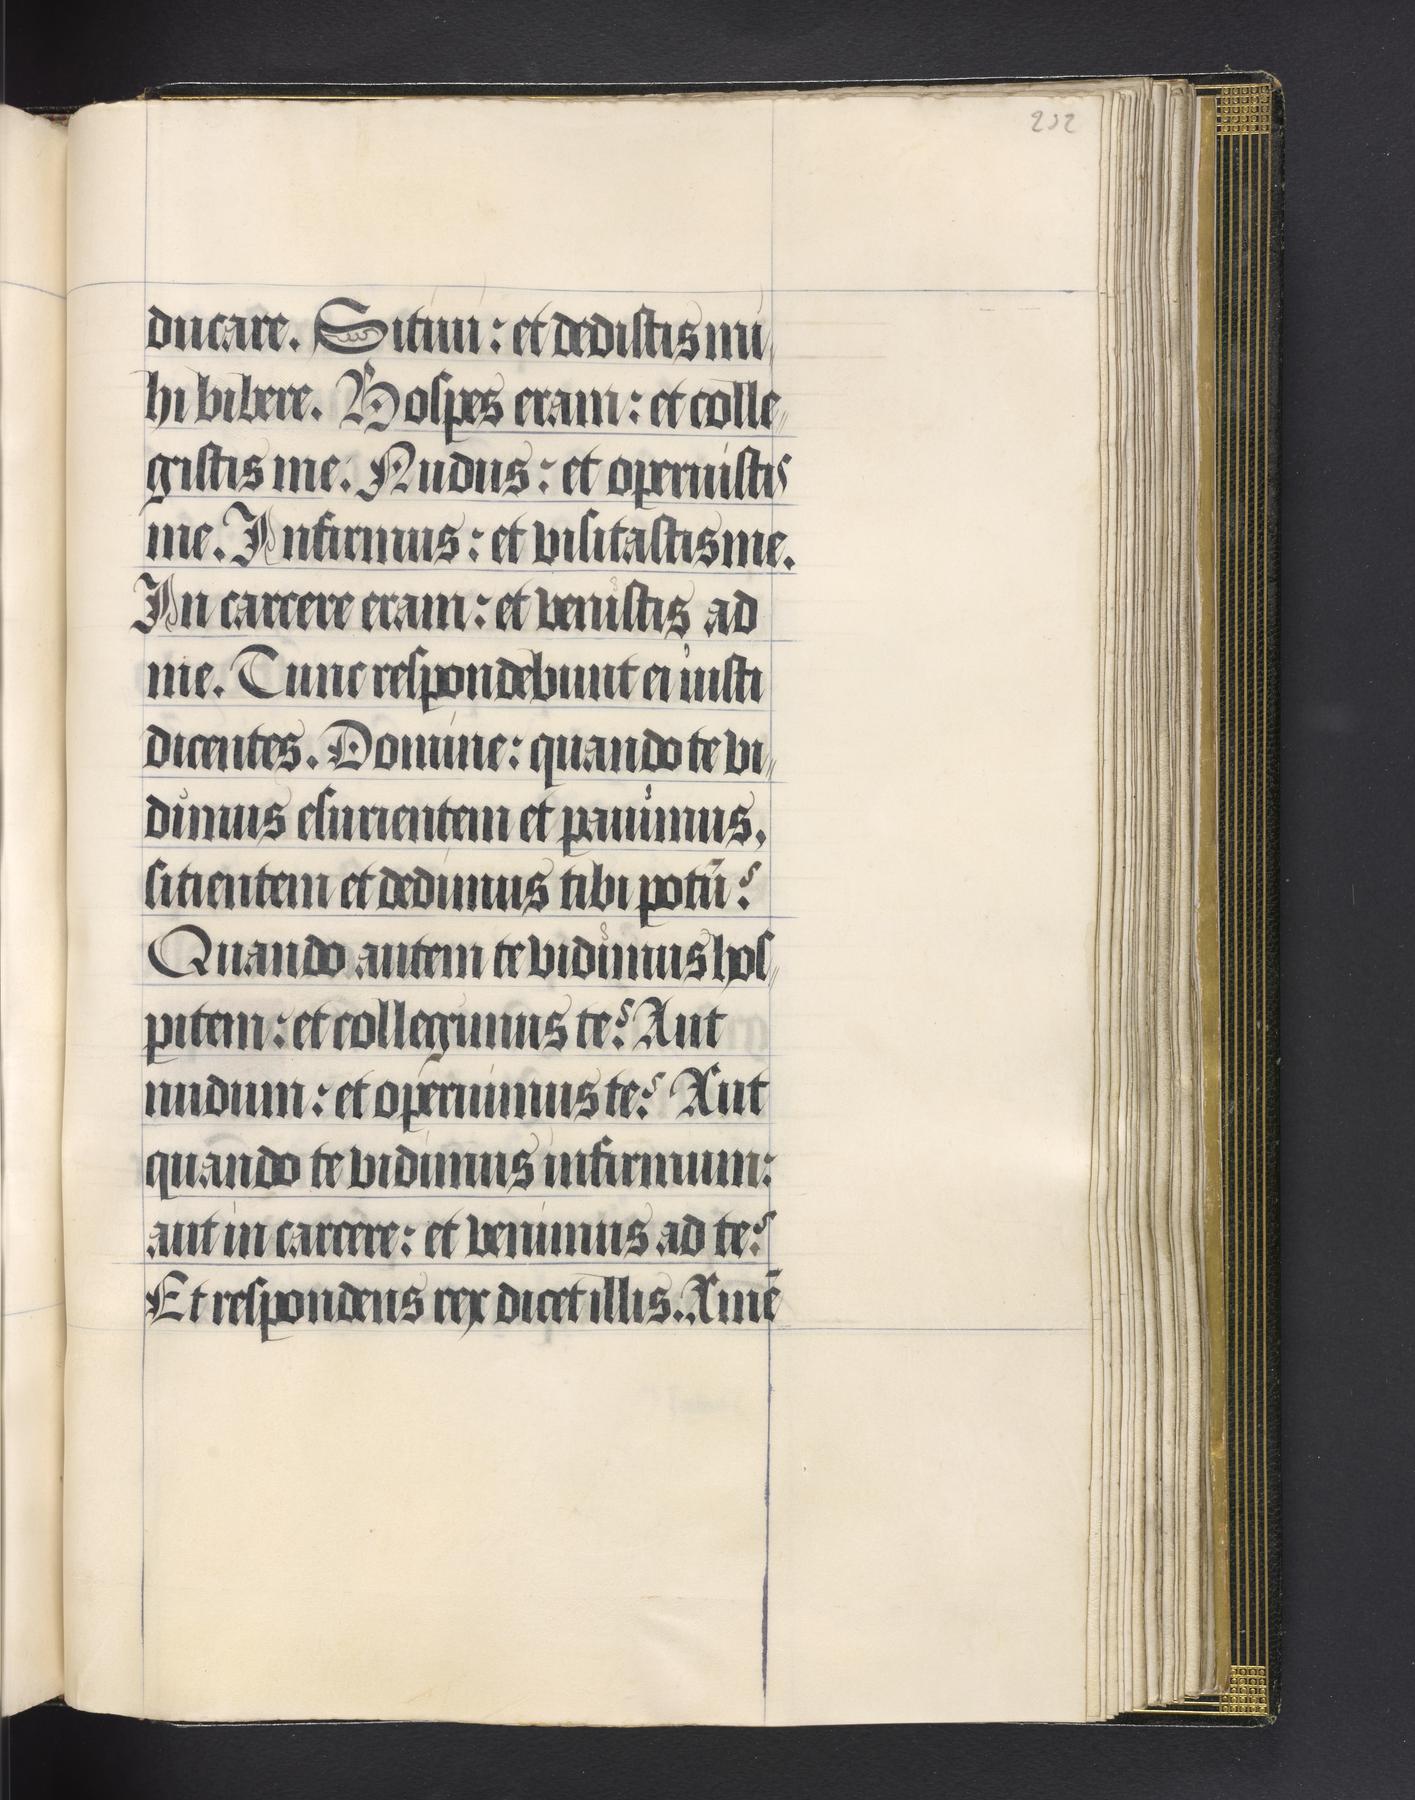 232
ducare. Sitiui: et dedistis mi
hi bibere. Hospes eram: et colle
gistis me. Nudus: et operuistis
me. Infirmus: et visitastis me.
In carcere eram: et venistis ad
me. Tunc respondebunt ei iusti
dicentes. Domine: quando te vi
dimus esurientem et pauimus,
sitientem et dedimus tibi potū?
Quando autem te vidimus hos
pitem: et collegimus te? Aut
nudum: et operuimus te? Aut
quando te vidimus infirmum:
aut in carcere: et venimus ad te?
Et respondens rex dicet illis. Amē